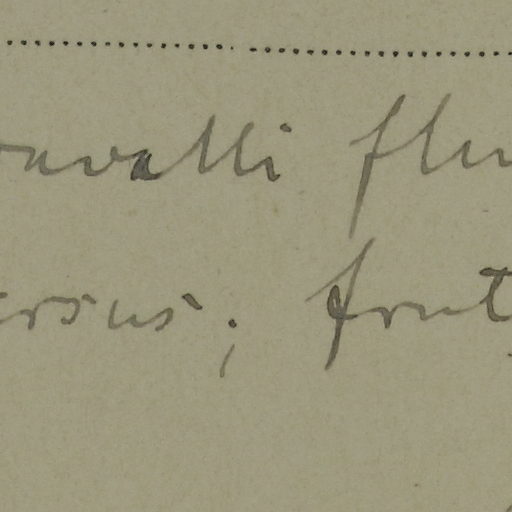 avalli flu
ersus; frut